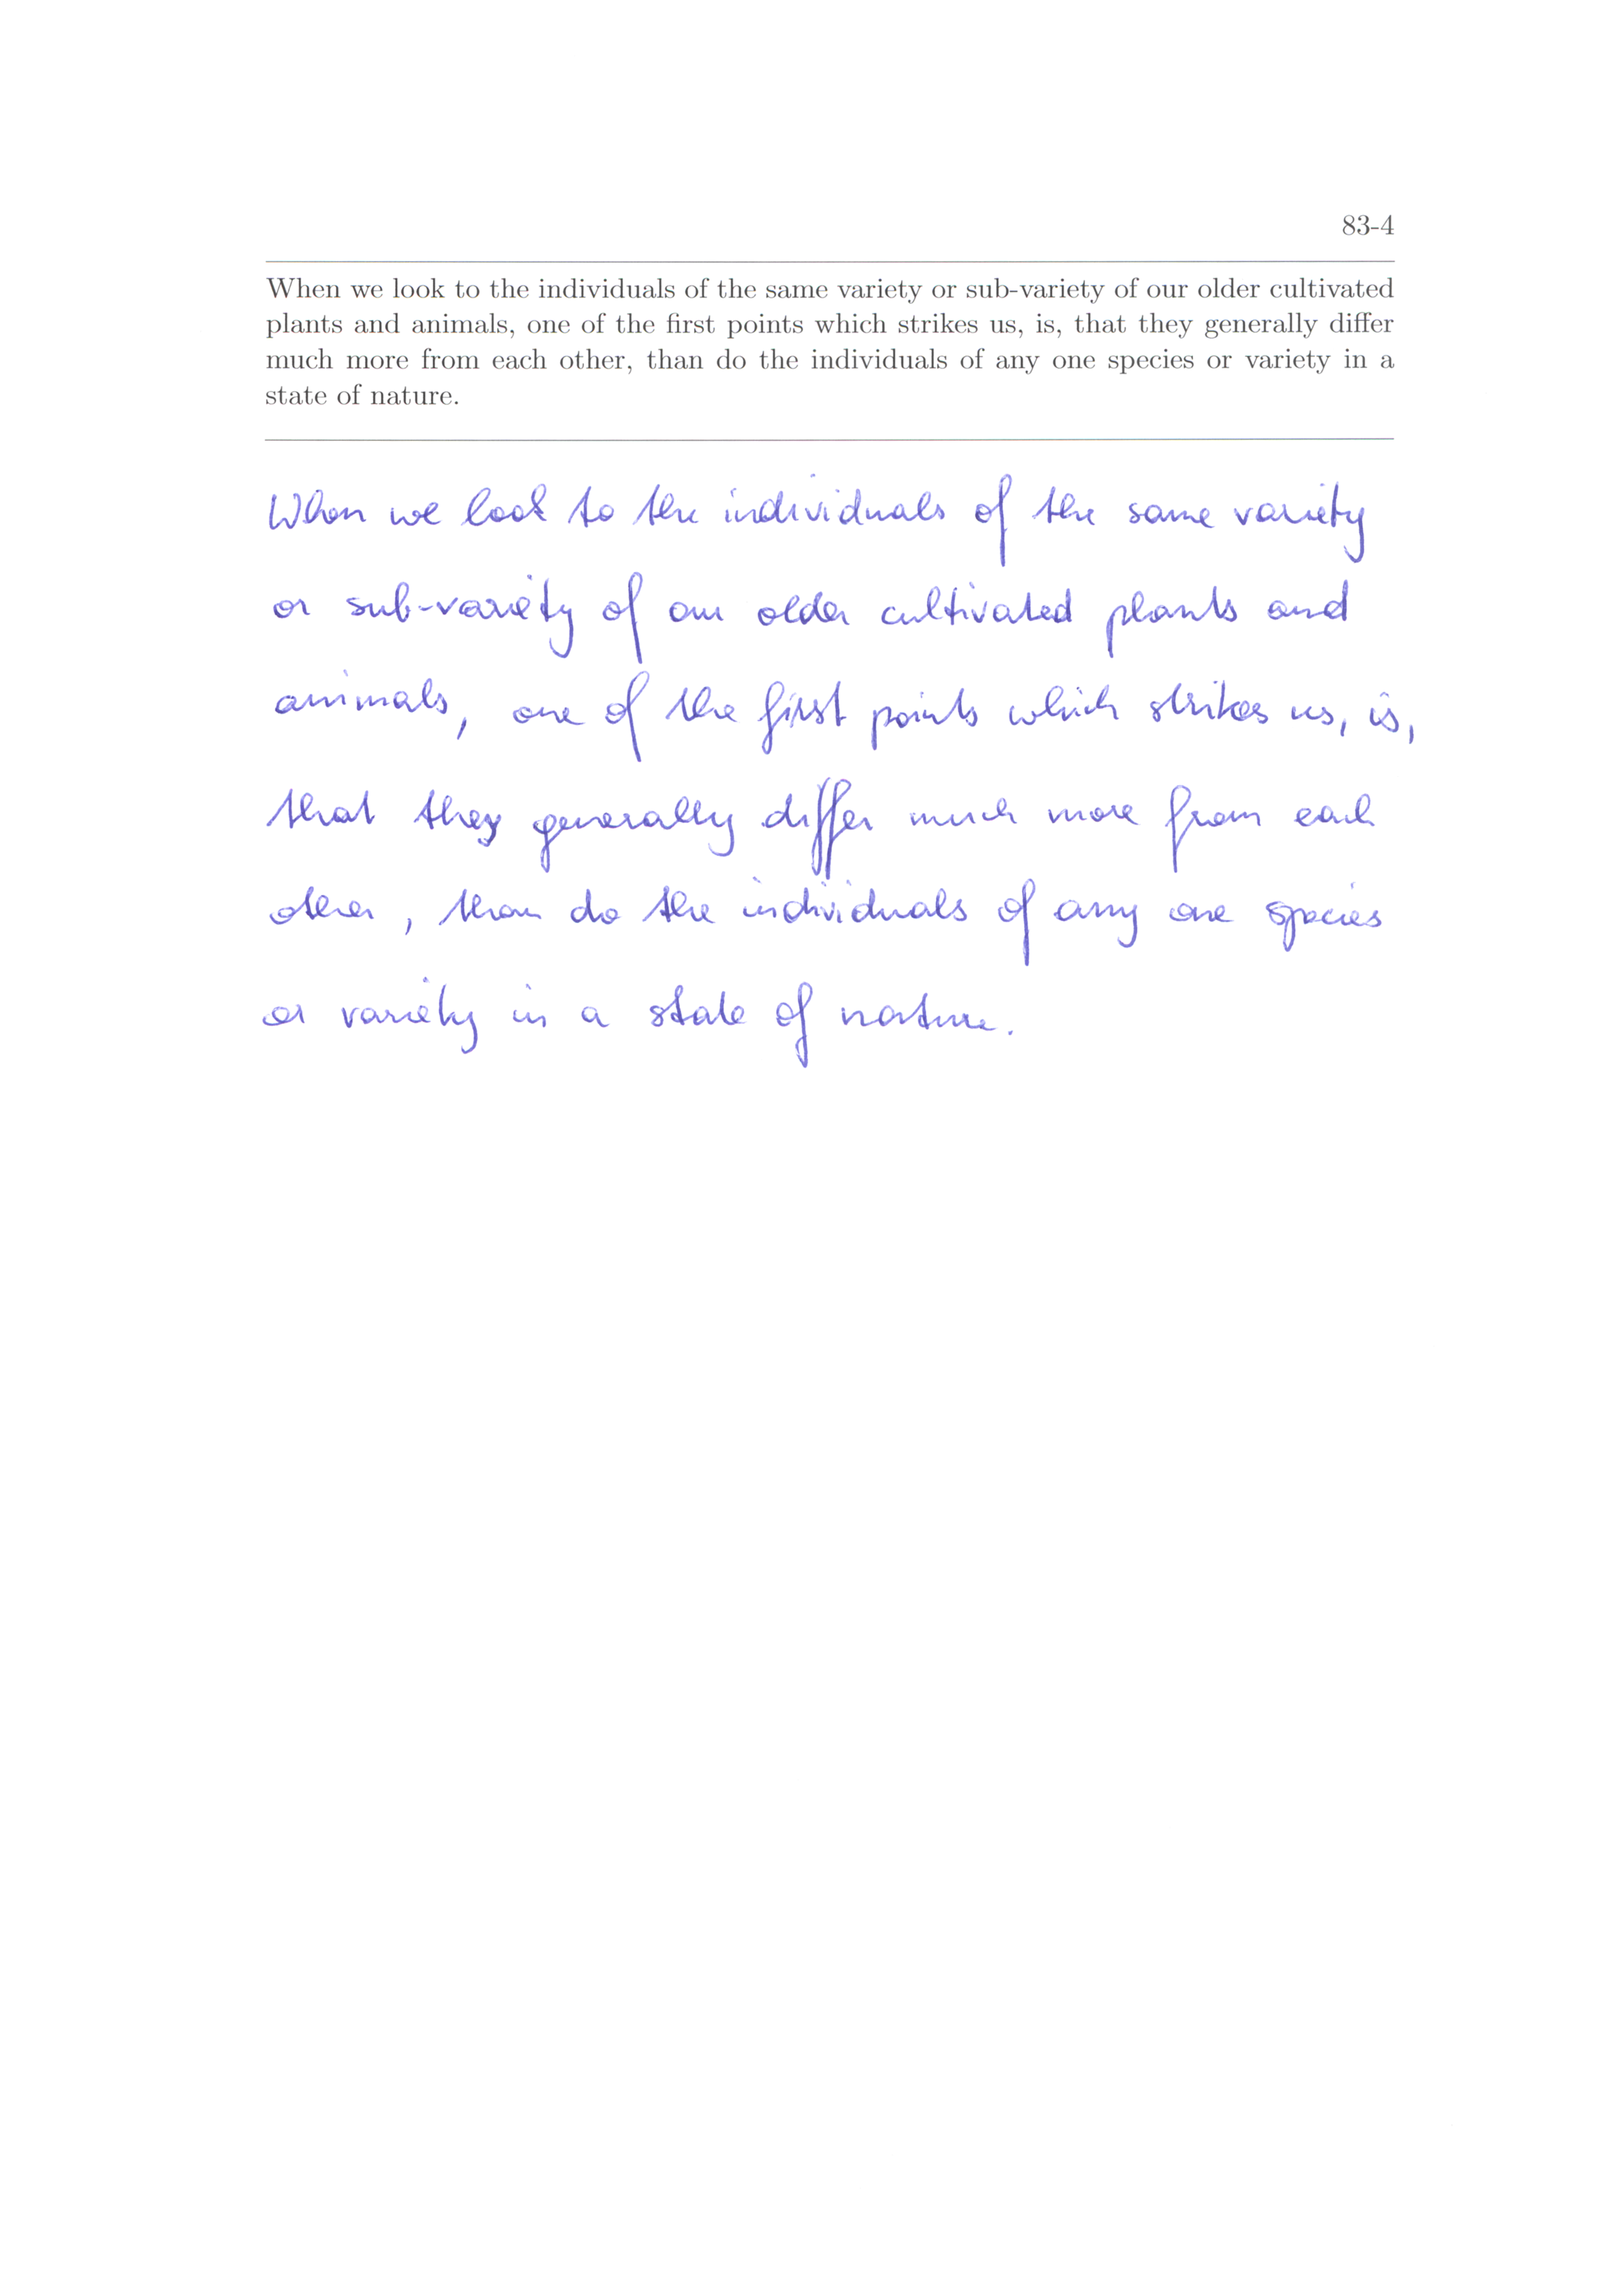 83-4
When we look to the individuals of the same variety or sub-variety of our older cultivated
plants and animals, one of the first points which strikes us, is, that they generally differ
much more from each other, than do the individuals of any one species or variety in a
state of nature.
When we look to the individuals of the same variety
or sub-variety of our older cultivated plants and
animals, one of the first points which strikes us, is,
that they generally differ much more from each
other, than do the individuals of any one species
or variety in a state of nature.